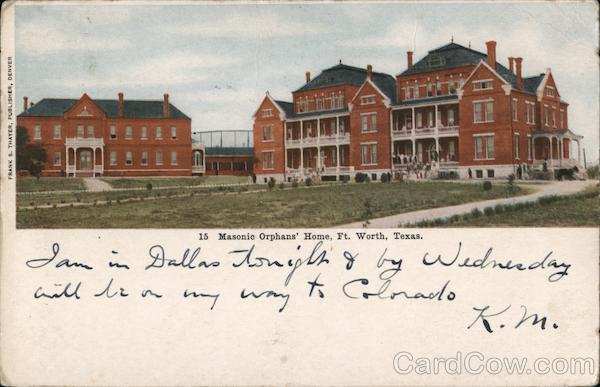 FRANK S. THAYER, PUBLISHER, DENVER
15 Masonic Orphans' Home, Ft. Worth, Texas.
I am in Dallas tonight & by Wednesday
will be on my way to Colorado
K.M.
CardCow.com